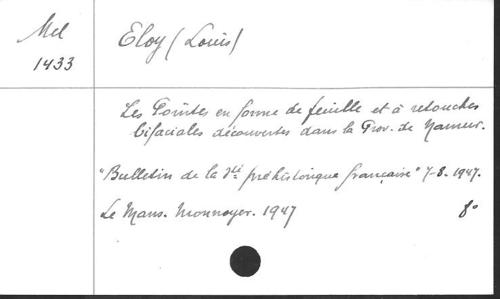 Mel
1433
Eloy (Louis)
Les Pointes en forme de feuille et à retouches
bifaciales découvertes dans la Prov. de Namur.
"Bulletin de la Sté préhistorique française" 7-8. 1947.
Le Mans. Monnoyer. 1947
8°